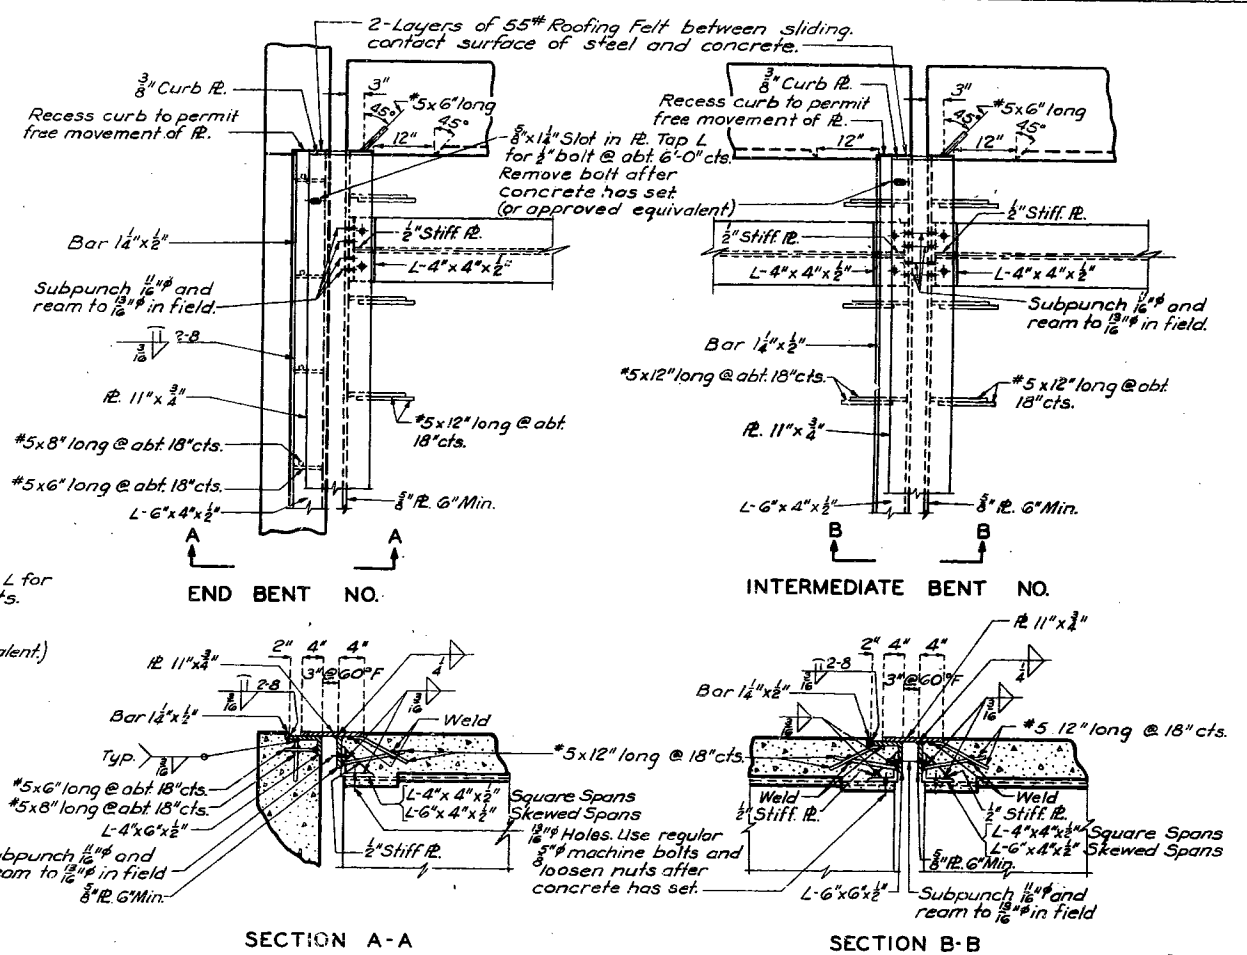 2-Layers of 55# Roofing Felt between sliding
contact surface of steel and concrete.
3/8" Curb PL.
Recess curb to permit
free movement of PL.
3"
45°
#5x6" long
45°
12"
5/8"x1 1/4" Slot in PL. Tap L
for 1/2" bolt @ abt. 6'-0" cts.
Remove bolt after
concrete has set
(or approved equivalent)
Bar 1 1/4"x 1/2"
1/2" Stiff PL.
L-4"x 4"x 1/2"
Subpunch 11/16"φ and
ream to 13/16"φ in field.
3/16 2-8
PL. 11"x 3/4"
#5x8" long @ abt. 18" cts.
#5x6" long @ abt. 18" cts.
L-6"x 4"x 1/2"
#5x12" long @ abt.
18" cts.
5/8" PL. 6" Min.
A A
END BENT NO.
3/8" Curb PL.
Recess curb to permit
free movement of PL.
12"
3"
45°
#5x6" long
45°
12"
1/2" Stiff PL.
1/2" Stiff PL.
L-4"x 4"x 1/2"
L-4"x 4"x 1/2"
Subpunch 11/16"φ and
ream to 13/16"φ in field.
Bar 1 1/4"x 1/2"
#5x12" long @ abt. 18" cts.
#5x12" long @ abt.
18" cts.
PL. 11"x 3/4"
L-6"x 4"x 1/2"
5/8" PL. 6" Min.
B B
INTERMEDIATE BENT NO.
L for
ts.
alent.)
PL 11"x 3/4"
2" 4" 4"
3"@60°F
1/4
3/16 2-8
3/16
Bar 1 1/4"x 1/2"
Weld
Typ. 3/16
#5x6" long @ abt 18" cts.
#5x8" long @ abt. 18" cts.
L-4"x6"x 1/2"
ubpunch 11/16"φ and
eam to 13/16"φ in field
5/8" PL. 6" Min.
1/2" Stiff PL.
L-4"x 4"x 1/2" Square Spans
L-6"x 4"x 1/2" Skewed Spans
#5x12" long @ 18" cts.
13/16"φ Holes. Use regular
5/8"φ machine bolts and
loosen nuts after
concrete has set.
SECTION A-A
PL 11"x 3/4"
2" 4" 4"
3"@60°F
1/4
3/16 2-8
Bar 1 1/4"x 1/2"
3/16
3/16
#5 12" long @ 18" cts.
Weld
1/2" Stiff. PL.
Weld
1/2" Stiff PL.
L-4"x4"x 1/2" Square Spans
L-6"x 4"x 1/2" Skewed Spans
5/8" PL. 6" Min.
L-6"x6"x 1/2"
Subpunch 11/16"φ and
ream to 13/16"φ in field
SECTION B-B